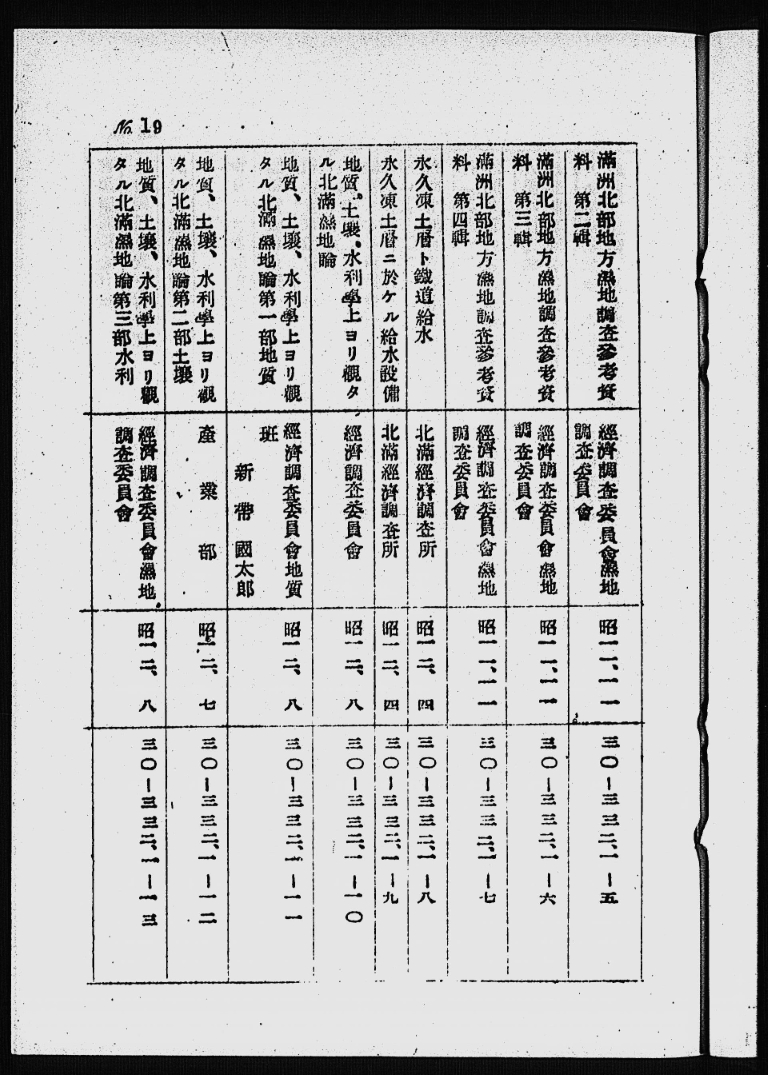 No. 19
滿洲北部地方濕地調査參考資
料 第二輯
經濟調査委員會濕地
調査委員會
昭一一、一一
三〇—三三二、一—五
滿洲北部地方濕地調査參考資
料 第三輯
經濟調査委員會濕地
調査委員會
昭一一、一一
三〇—三三二、一—六
滿洲北部地方濕地調査參考資
料 第四輯
經濟調査委員會濕地
調査委員會
昭一一、一一
三〇—三三二、一—七
永久凍土層ト鐵道給水
北滿經濟調査所
昭一二、四
三〇—三三二、一—八
永久凍土層ニ於ケル給水設備
北滿經濟調査所
昭一二、四
三〇—三三二、一—九
地質、土壤、水利學上ヨリ觀タ
ル北滿濕地論
經濟調査委員會
昭一二、八
三〇—三三二、一—一〇
地質、土壤、水利學上ヨリ觀
タル北滿濕地論第一部地質
經濟調査委員會地質
班
新帶國太郎
昭一二、八
三〇—三三二、一—一一
地質、土壤、水利學上ヨリ觀
タル北滿濕地論第二部土壤
產業部
昭一二、七
三〇—三三二、一—一二
地質、土壤、水利學上ヨリ觀
タル北滿濕地論第三部水利
經濟調査委員會濕地
調査委員會
昭一二、八
三〇—三三二、一—一三